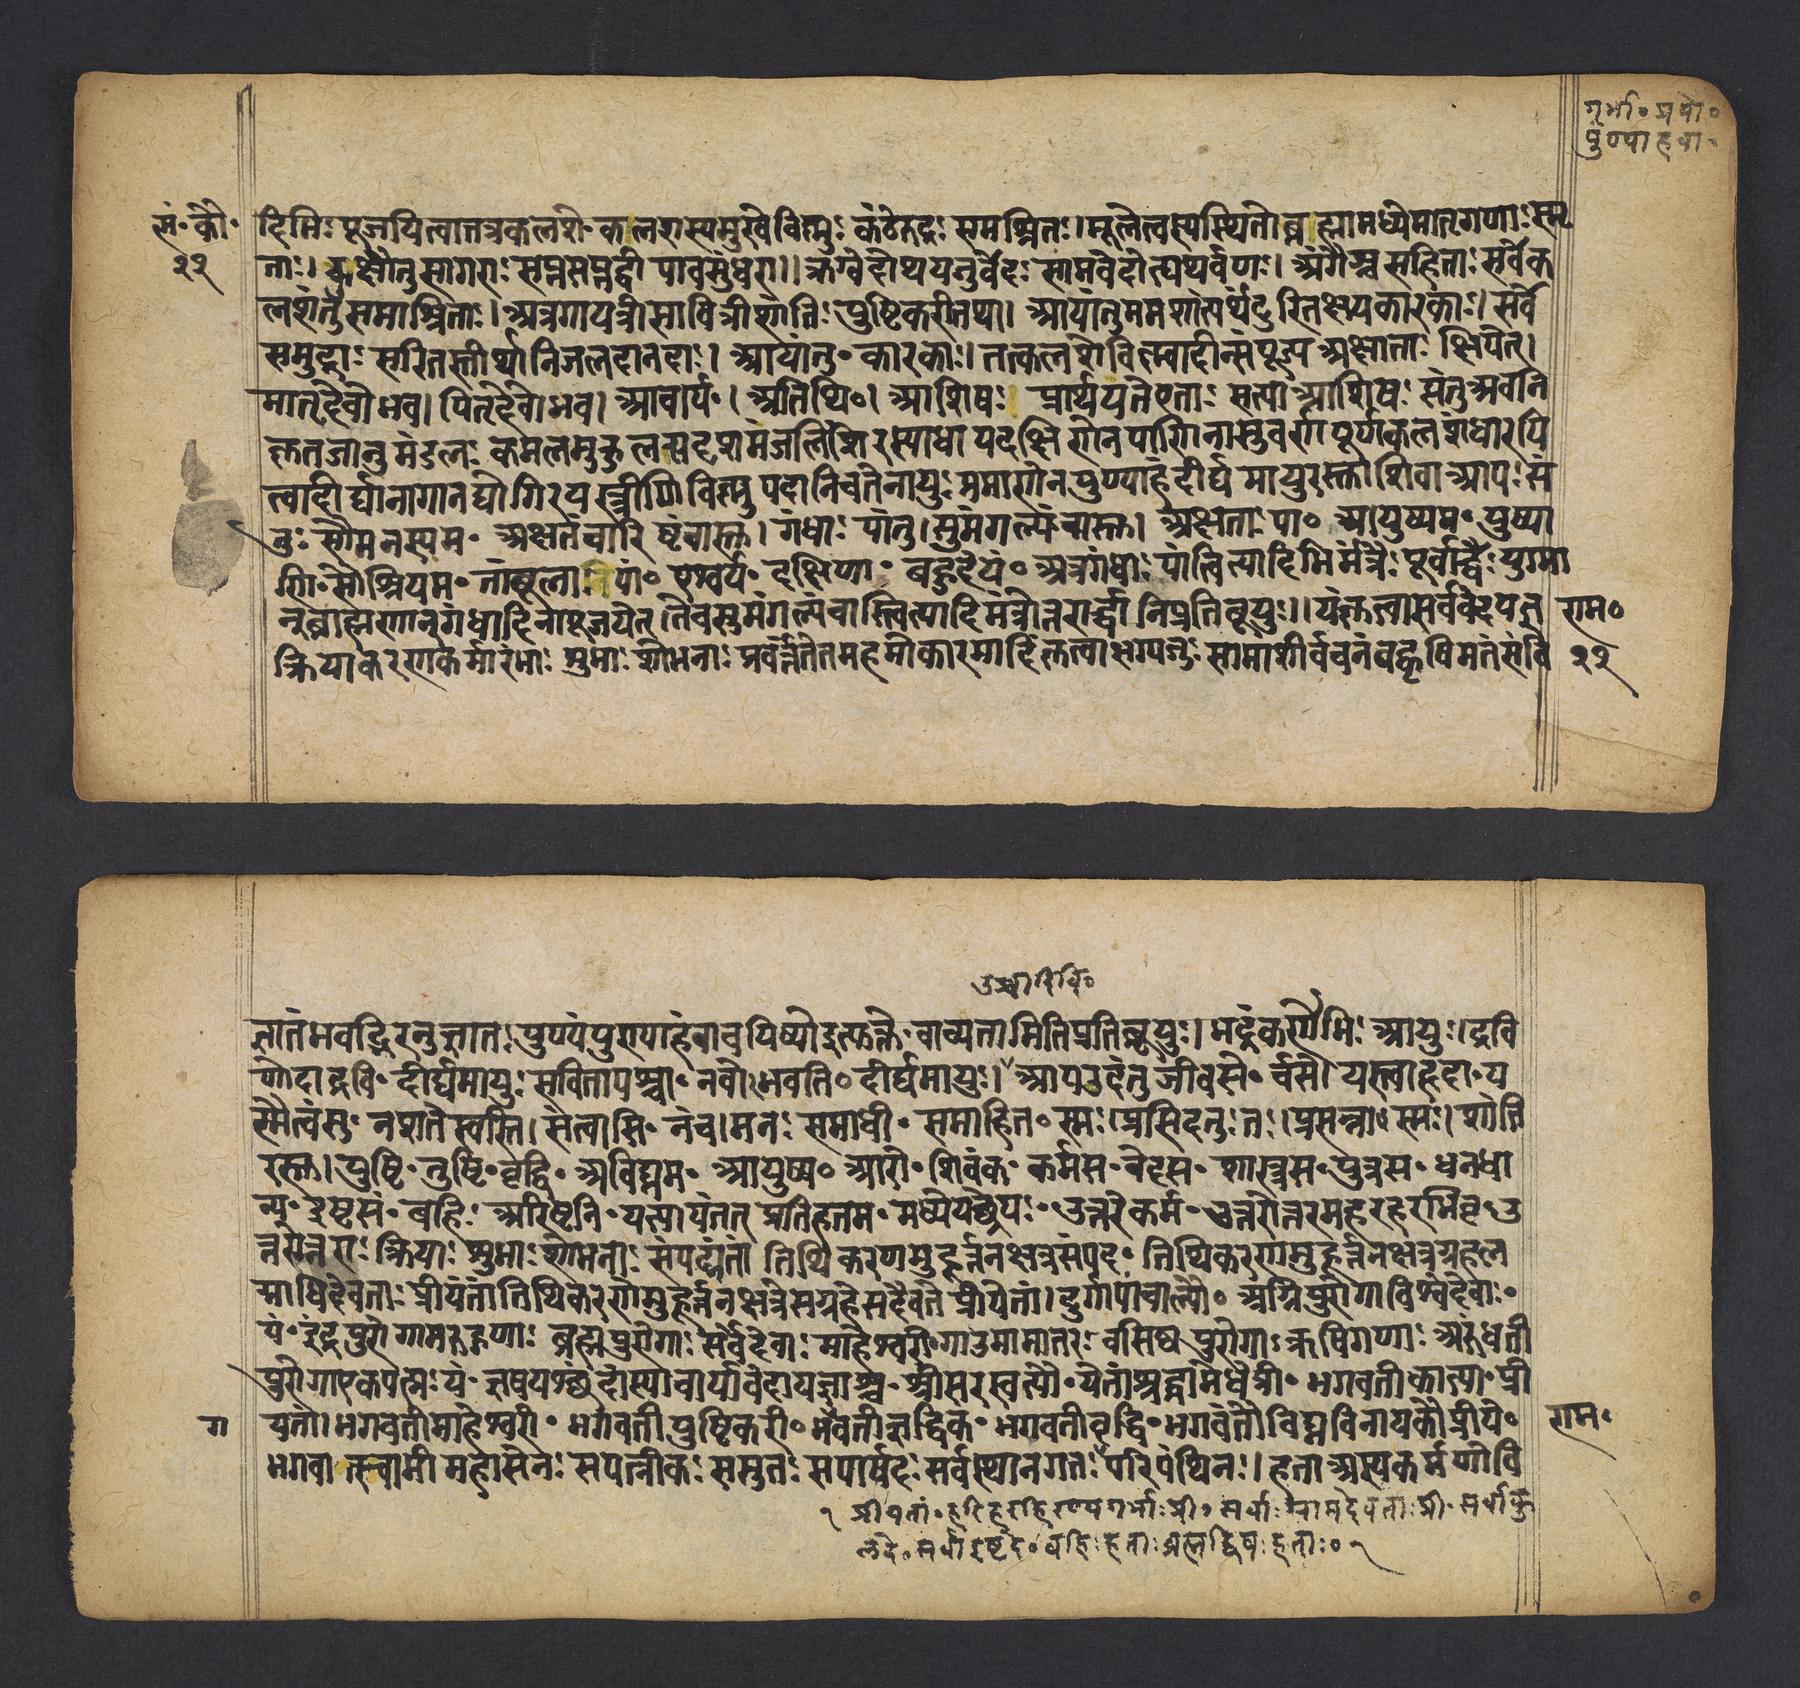 गर्भा॰प्रयो॰
पुण्याहवा॰
सं॰ कौ॰
२२
दिभिः पूजयित्वा तत्रकलशे॰ कलशस्यमुखेविष्णुः कंठेरुद्रः समाश्रितः। मूलेत्वस्यस्थितोब्रह्मामध्येमातृगणाःस्मृ
ताः। कुक्षौतुसागराः सप्तसप्तद्वीपावसुंधरा॥ ऋग्वेदोथयजुर्वेदः सामवेदोह्यथर्वणः। अंगैश्च सहिताः सर्वेक
लशंतुसमाश्रिताः। अत्रगायत्रीसावित्रीशांतिः पुष्टिकरीतथा। आयांतुममशांत्यर्थंदुरितक्षयकारकाः। सर्वे
समुद्राः सरितस्तीर्थानिजलदानदाः। आयांतु॰ कारकाः। तत्कलशेविष्ण्वादीन्संपूज्य अक्षतान् क्षिपेत्।
मातृदेवोभव। पितृदेवोभव। आचार्य॰। अतिथि॰। आशिषः प्रार्थयंतेएताः सत्याआशिषः संतु अवनि
कृतजानुमंडलः कमलमुकुलसदृशमंजलिंशिरस्याधायदक्षिणेनपाणिनासुवर्णपूर्णकलशंधारयि
त्वादीर्घानागानद्योगिरयस्त्रीणिविष्णुपदानिचतेनायुःप्रमाणेनपुण्याहंदीर्घमायुरस्तुशिवा आपः सं
तुः सौमनस्यम॰ अक्षतंचारिष्टंचास्तु। गंधाः पांतु। सुमंगल्यंचास्तु। अक्षताः पां॰ आयुष्यम॰ पुष्पा
णि॰सौश्रियम॰ तांबूलानिपां॰ ऐश्वर्य॰ दक्षिणा॰ बहुदेयं॰ अत्रगंधाः पांत्वित्यादिभिर्मंत्रैः पूर्वार्द्धैः युग्मा
न्ब्राह्मणान्गंधादिनापूजयेत्। तेचसुमंगल्यंचास्त्वित्यादिमंत्रोत्तरार्द्धानिप्रतिब्रूयुः॥ यंकृत्वासर्ववेदयज्ञ
राम॰
क्रियाकरणकर्मारंभाः शुभाः शोभनाः प्रवर्त्तंतेतमहमोंकारमादिंकृत्वाऋग्यजुः सामाशीर्वचनंबह्वृषिमतंसंवि
२२
ज्ञातंभवद्भिरनुज्ञातः पुण्यंपुण्याहंवाचयिष्ये वाच्यतामितिप्रतिब्रूयुः। भद्रंकर्णेभिः आयुः। द्रवि
णोदाद्रवि॰ दीर्घमायुः सवितापश्चा॰ नवोभवति॰ दीर्घमायुः। आपउंदंतु जीवसे॰ र्चसे। यस्त्वाहृदा॰ य
स्मैत्वंसु॰ नशतेस्वस्ति। संत्वासिं॰ नंच। मनः समाधी॰ समाहित॰ स्मः। प्रसिदंतु॰तः। प्रसन्ना॰ स्मः। शांति
रस्तु। पुष्टि॰ तुष्टि॰ वृद्धि॰ अविघ्नम॰ आयुष्य॰ आरो॰ शिवंक॰ कर्मस॰ वेदस॰ शास्त्रस॰ पुत्रस॰ धनधा
न्य॰ इष्टसं॰ बहिः अरिष्टनि॰ यत्पापंतत् प्रतिहतम॰ उत्तरेकर्म॰ उत्तरोत्तरमहरहरभिवृ॰ उ
त्तरोत्तराः क्रियाः शुभाः शोभनाः संपद्यंतां तिथिकरणमुहूर्त्तनक्षत्रसंपद॰ तिथिकरणमुहूर्त्तनक्षत्रग्रहल
ग्नाधिदेवताः प्रीयंतां तिथिकरणेमुहूर्त्तनक्षत्रेसग्रहेसदैवते प्रीयेतां। दुर्गापांचाल्यौ॰ अग्निपुरोगाविश्वेदेवाः॰
यं॰ इंद्रपुरोगामरुद्गणाः ब्रह्मपुरोगाः सर्वेदेवाः माहेश्वरीपुरोगाउमामातरः वसिष्ठपुरोगाऋषिगणाः अरुंधती
पुरोगाएकपत्न्यःयं॰ ऋषयश्छंदांस्याचार्यावेदायज्ञाश्च॰ श्रीसरस्वत्यौ॰ येतांश्रद्धामेधेप्री॰ भगवतीकात्या॰ प्री
यतां। भगवतीमाहेश्वरी॰ भगवतीपुष्टिकरी॰ भवतीऋद्धिक॰ भगवतीवृद्धि॰ भगवंतौविघ्नविनायकौप्रीये॰
ग
राम॰
भगवान्स्वामीमहासेनः सपत्नीकः ससुतः सपार्षदः सर्वस्थानगतः परिपंथिनः। हताअस्यकर्मणोवि
१ प्रीयतां॰ हरिहरहिरण्यगर्भाः प्री॰ सर्वाः ग्रामदेवताः प्री॰ सर्वाःकु
लदे॰ सर्वाइष्टदे॰ बहिःहताःब्रह्मद्विषःहताः॰